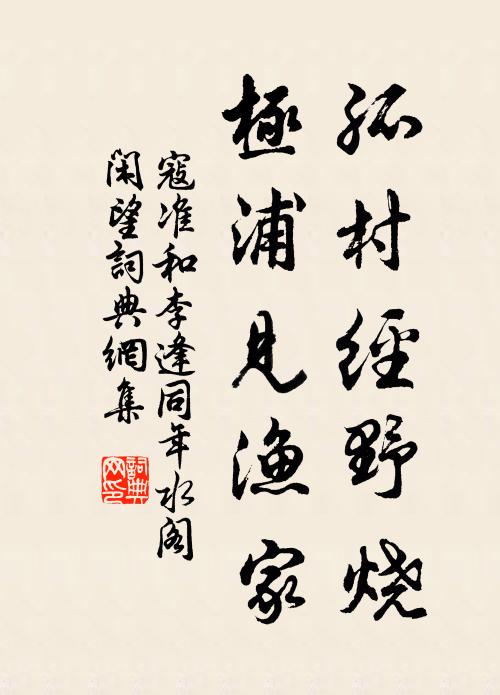 孤村經野烧
極浦見漁家
寇准和李逢同年水阁
闲望詞典網集
詞典网印